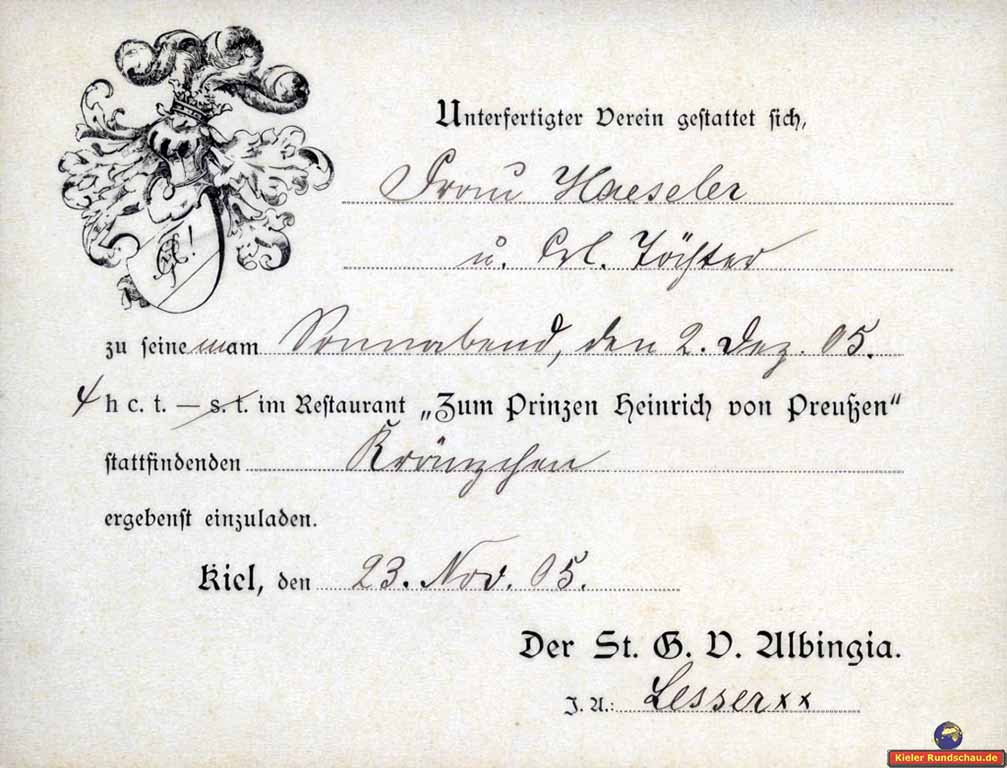 Unterfertigter Verein gestattet sich,
Frau Haeseler
u. Frl. Töchter
zu seinem am Sonnabend, den 2. Dez. 05.
4 h c. t. — s. t. im Restaurant „Zum Prinzen Heinrich von Preußen“
stattfindenden Kränzchen
ergebenst einzuladen.
Kiel, den 23. Nov. 05.
Der St. G. V. Albingia.
J. A.: Lesser xx
Kieler Rundschau.de